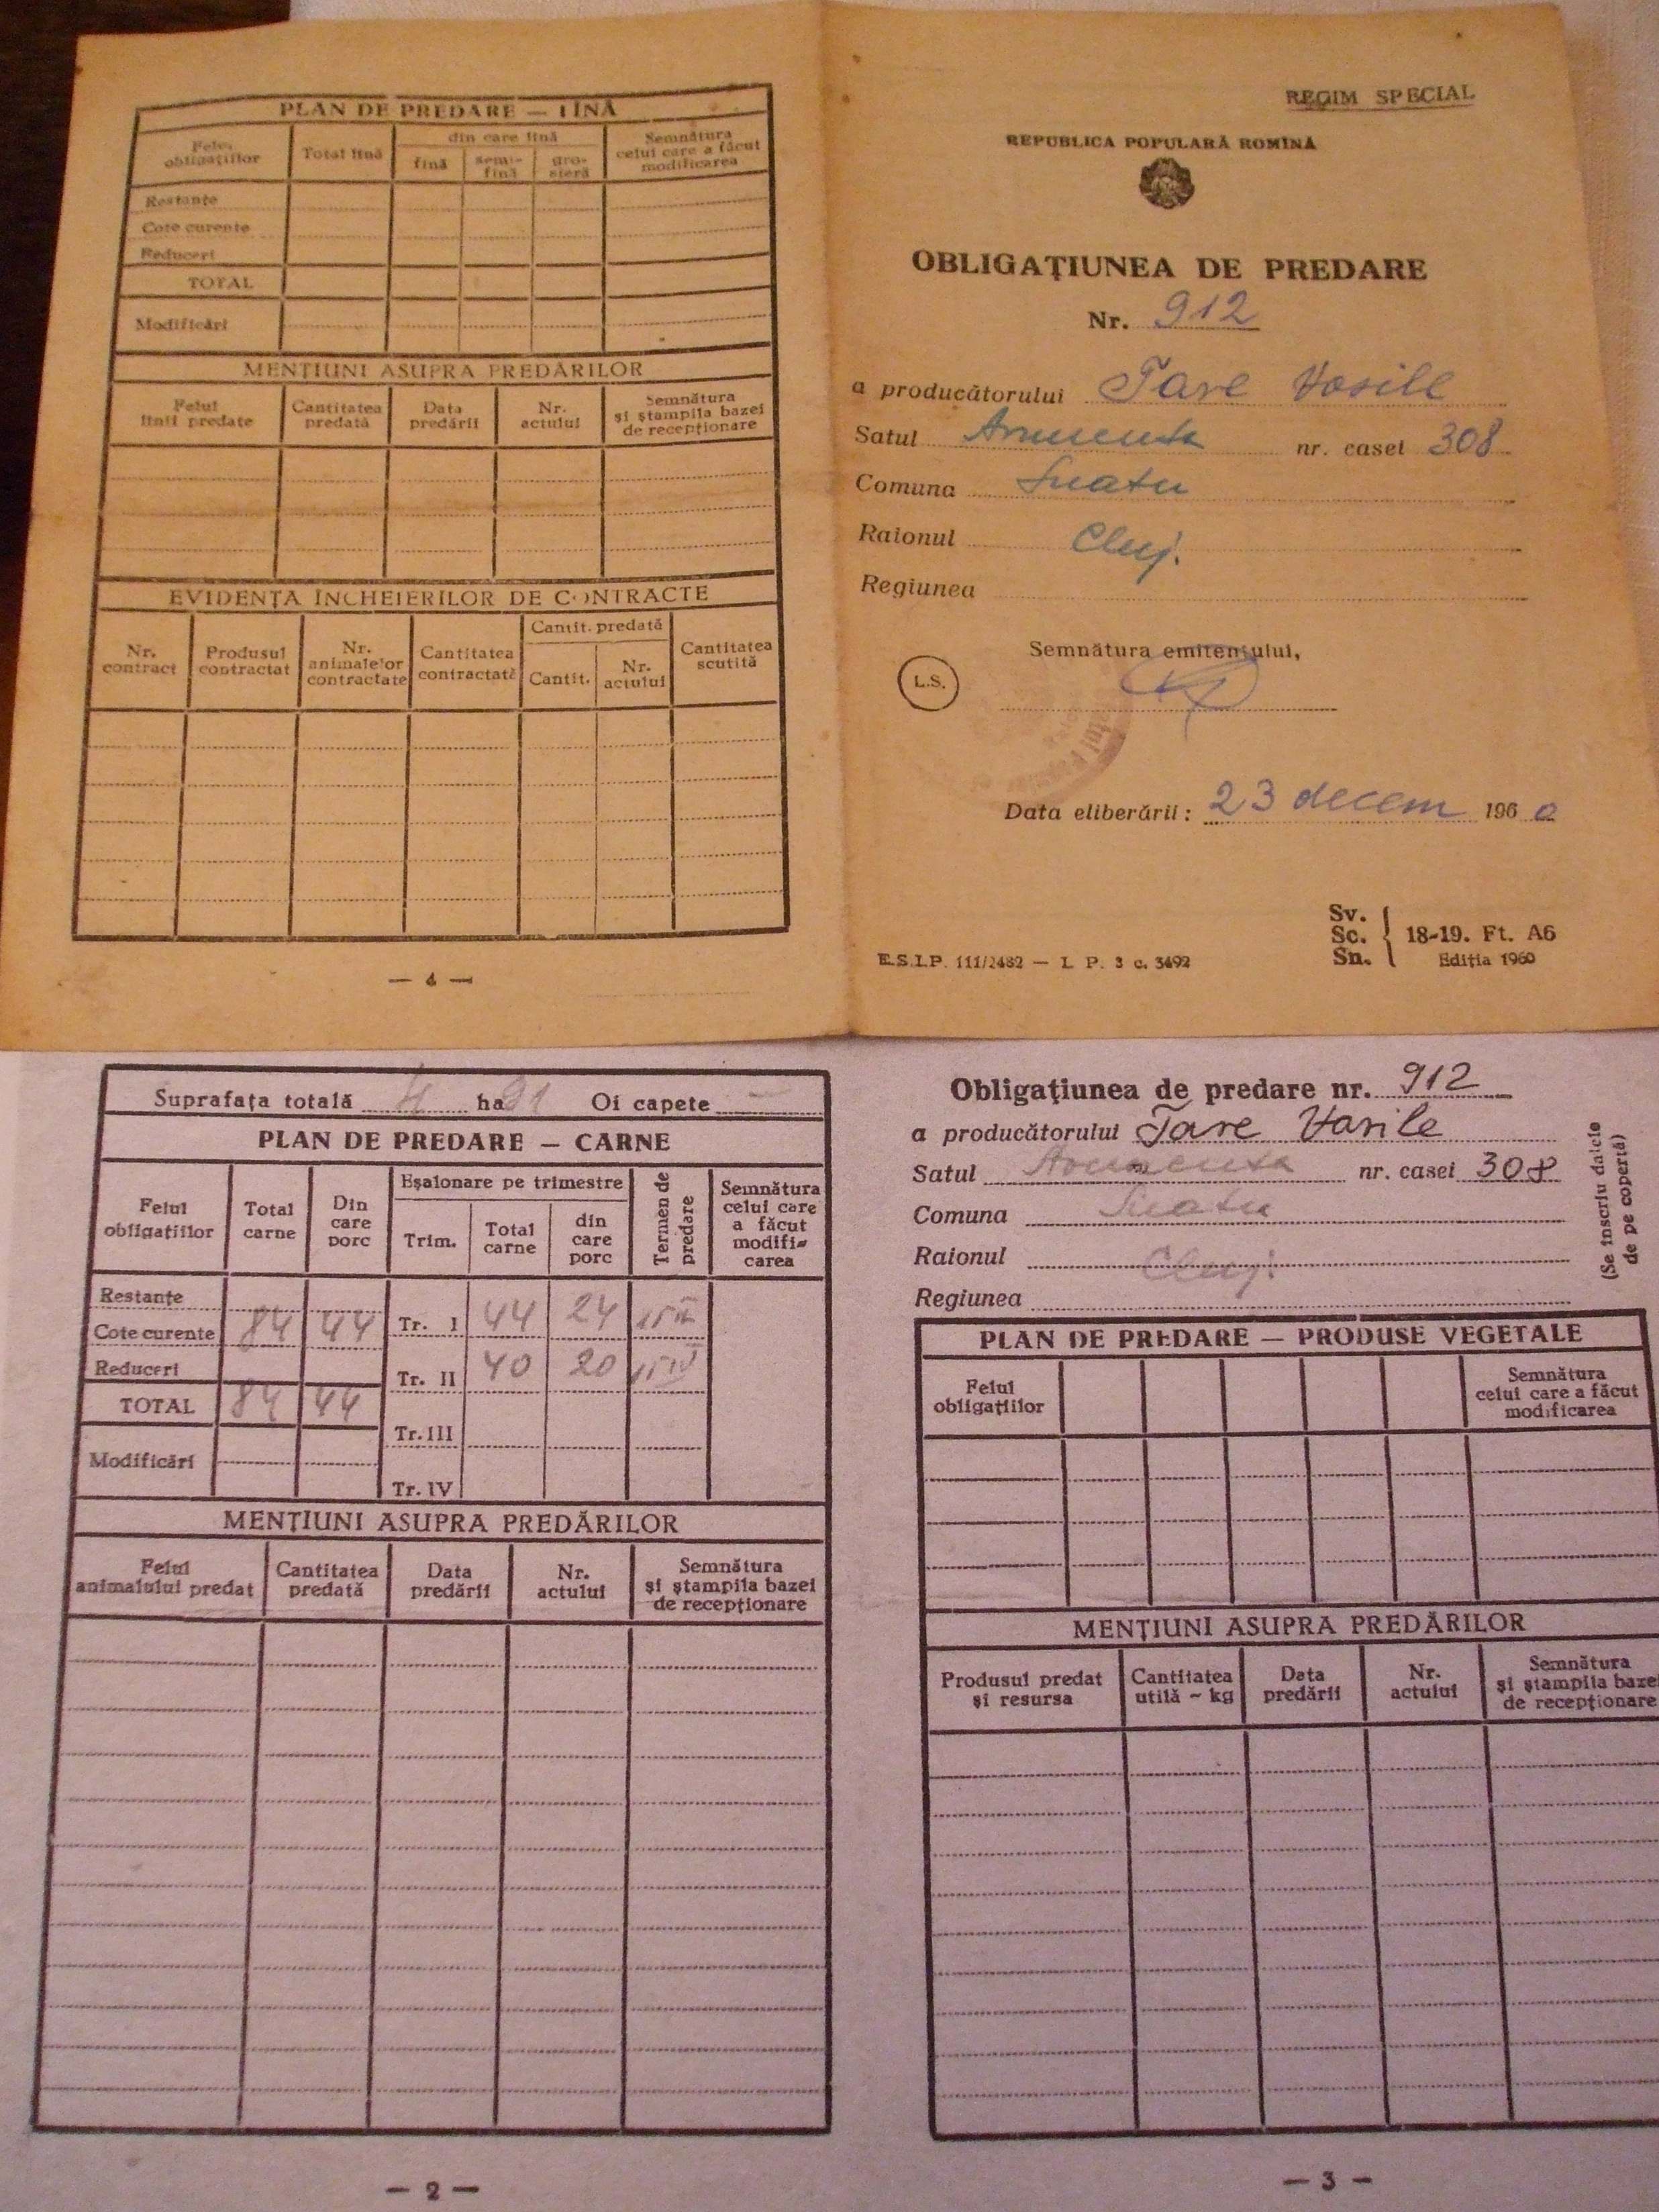 PLAN DE PREDARE — LÎNĂ
Felul obligațiilor
Total lînă
din care lînă
fină
semi-fină
gro-sieră
Semnătura celui care a făcut modificarea
Restanțe
Cote curente
Reduceri
TOTAL
Modificări
MENȚIUNI ASUPRA PREDĂRILOR
Felul lînii predate
Cantitatea predată
Data predării
Nr. actului
Semnătura și ștampila bazei de recepționare
EVIDENȚA ÎNCHEIERILOR DE CONTRACTE
Nr. contract
Produsul contractat
Nr. animalelor contractate
Cantitatea contractată
Cantit. predată
Cantit.
Nr. actului
Cantitatea scutită
— 4 —
REGIM SPECIAL
REPUBLICA POPULARĂ ROMÎNĂ
OBLIGAȚIUNEA DE PREDARE
Nr. 912
a producătorului Tare Vasile
Satul nr. casei 308
Comuna Suatu
Raionul Cluj.
Regiunea
Semnătura emitentului,
L.S.
Data eliberării: 23 decem 1960
Sv.
Sc. 18-19. Ft. A6
Sn. Ediția 1960
E.S.I.P. 111/2482 — I. P. 3 c. 3492
Suprafața totală 4 ha 91 Oi capete —
PLAN DE PREDARE — CARNE
Felul obligațiilor
Total carne
Din care porc
Eșalonare pe trimestre
Trim.
Total carne
din care porc
Termen de predare
Semnătura celui care a făcut modifi-carea
Restanțe
Cote curente 84 44
Reduceri
TOTAL 84 44
Modificări
Tr. I 44 24
Tr. II 40 20
Tr. III
Tr. IV
MENȚIUNI ASUPRA PREDĂRILOR
Felul animalului predat
Cantitatea predată
Data predării
Nr. actului
Semnătura și ștampila bazei de recepționare
— 2 —
Obligațiunea de predare nr. 912
a producătorului Tare Vasile
Satul nr. casei 308
Comuna Suatu
Raionul Cluj.
Regiunea
(Se înscriu datele de pe copertă)
PLAN DE PREDARE — PRODUSE VEGETALE
Felul obligațiilor
Semnătura celui care a făcut modificarea
MENȚIUNI ASUPRA PREDĂRILOR
Produsul predat și resursa
Cantitatea utilă – kg
Data predării
Nr. actului
Semnătura și ștampila bazei de recepționare
— 3 —